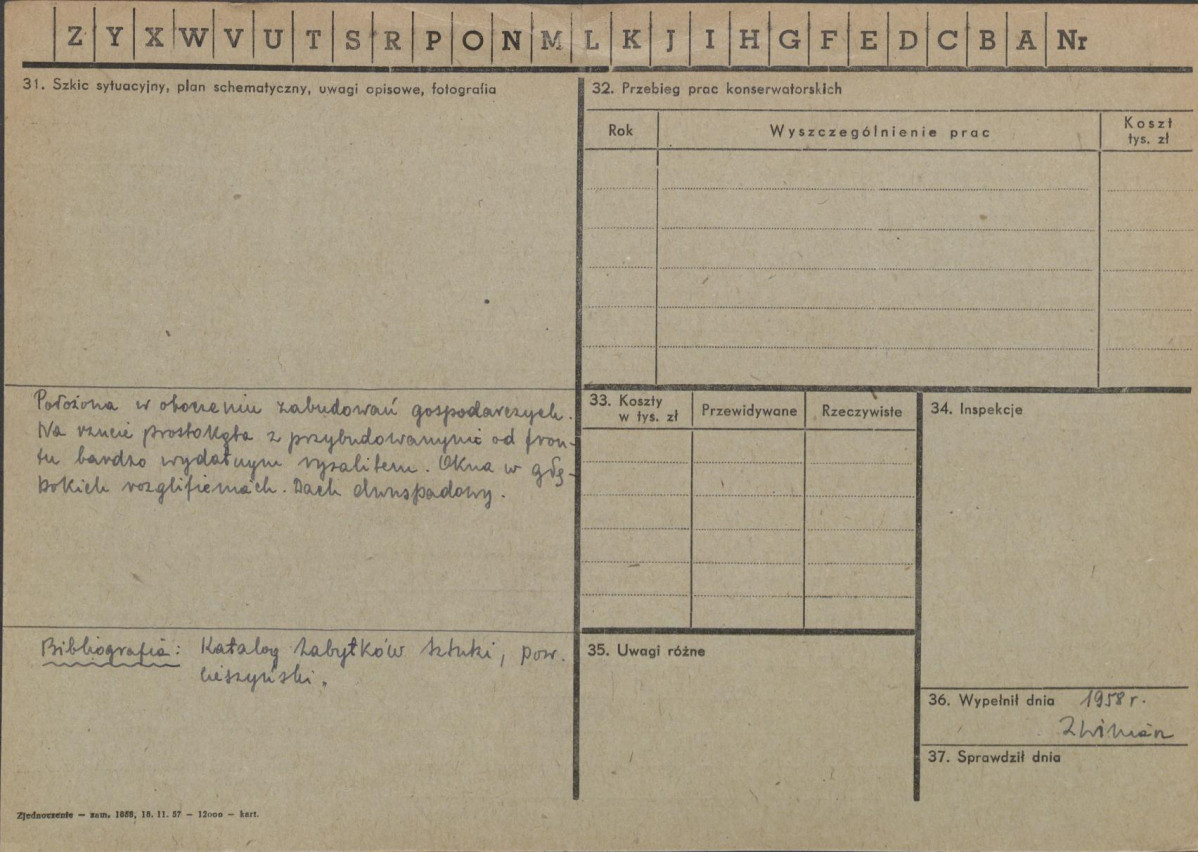 Z Y X W V U T S R P O N M L K J I H G F E D C B A Nr
31. Szkic sytuacyjny, plan schematyczny, uwagi opisowe, fotografia
Położona w otoczeniu zabudowań gospodarczych.
Na rzucie prostokąta z przybudowanymi od fron-
tu bardzo wydatnym ryzalitem. Okna w głę-
bokich rozglifieniach. Dach dwuspadowy.
Bibliografia: Katalog Zabytków Sztuki, pow.
cieszyński.
Zjednoczenie – zam. 1688, 18. 11. 57 – 12000 – kart.
32. Przebieg prac konserwatorskich
Rok Wyszczególnienie prac Koszt
tys. zł
33. Koszty
w tys. zł Przewidywane Rzeczywiste
34. Inspekcje
35. Uwagi różne
36. Wypełnił dnia 1958 r.
37. Sprawdził dnia